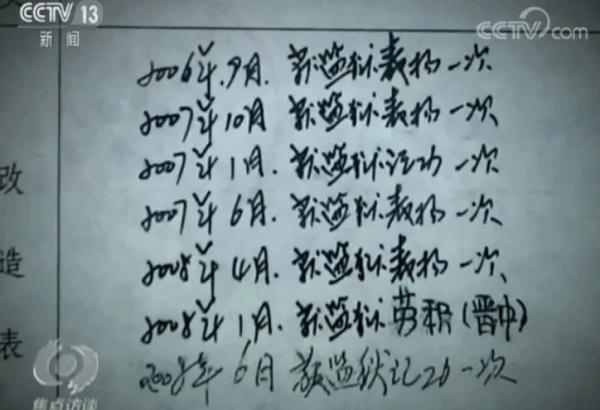 CCTV 13
新闻
CCTV.com
2006年.9月.获监狱表扬一次
2007年10月获监狱表扬一次
2007年1月.获监狱记功一次
2007年6月.获监狱表扬一次
2008年4月.获监狱表扬一次
2008年1月.获监狱劳积(晋中)
2008年6月获监狱记功一次
改
造
表
焦点访谈